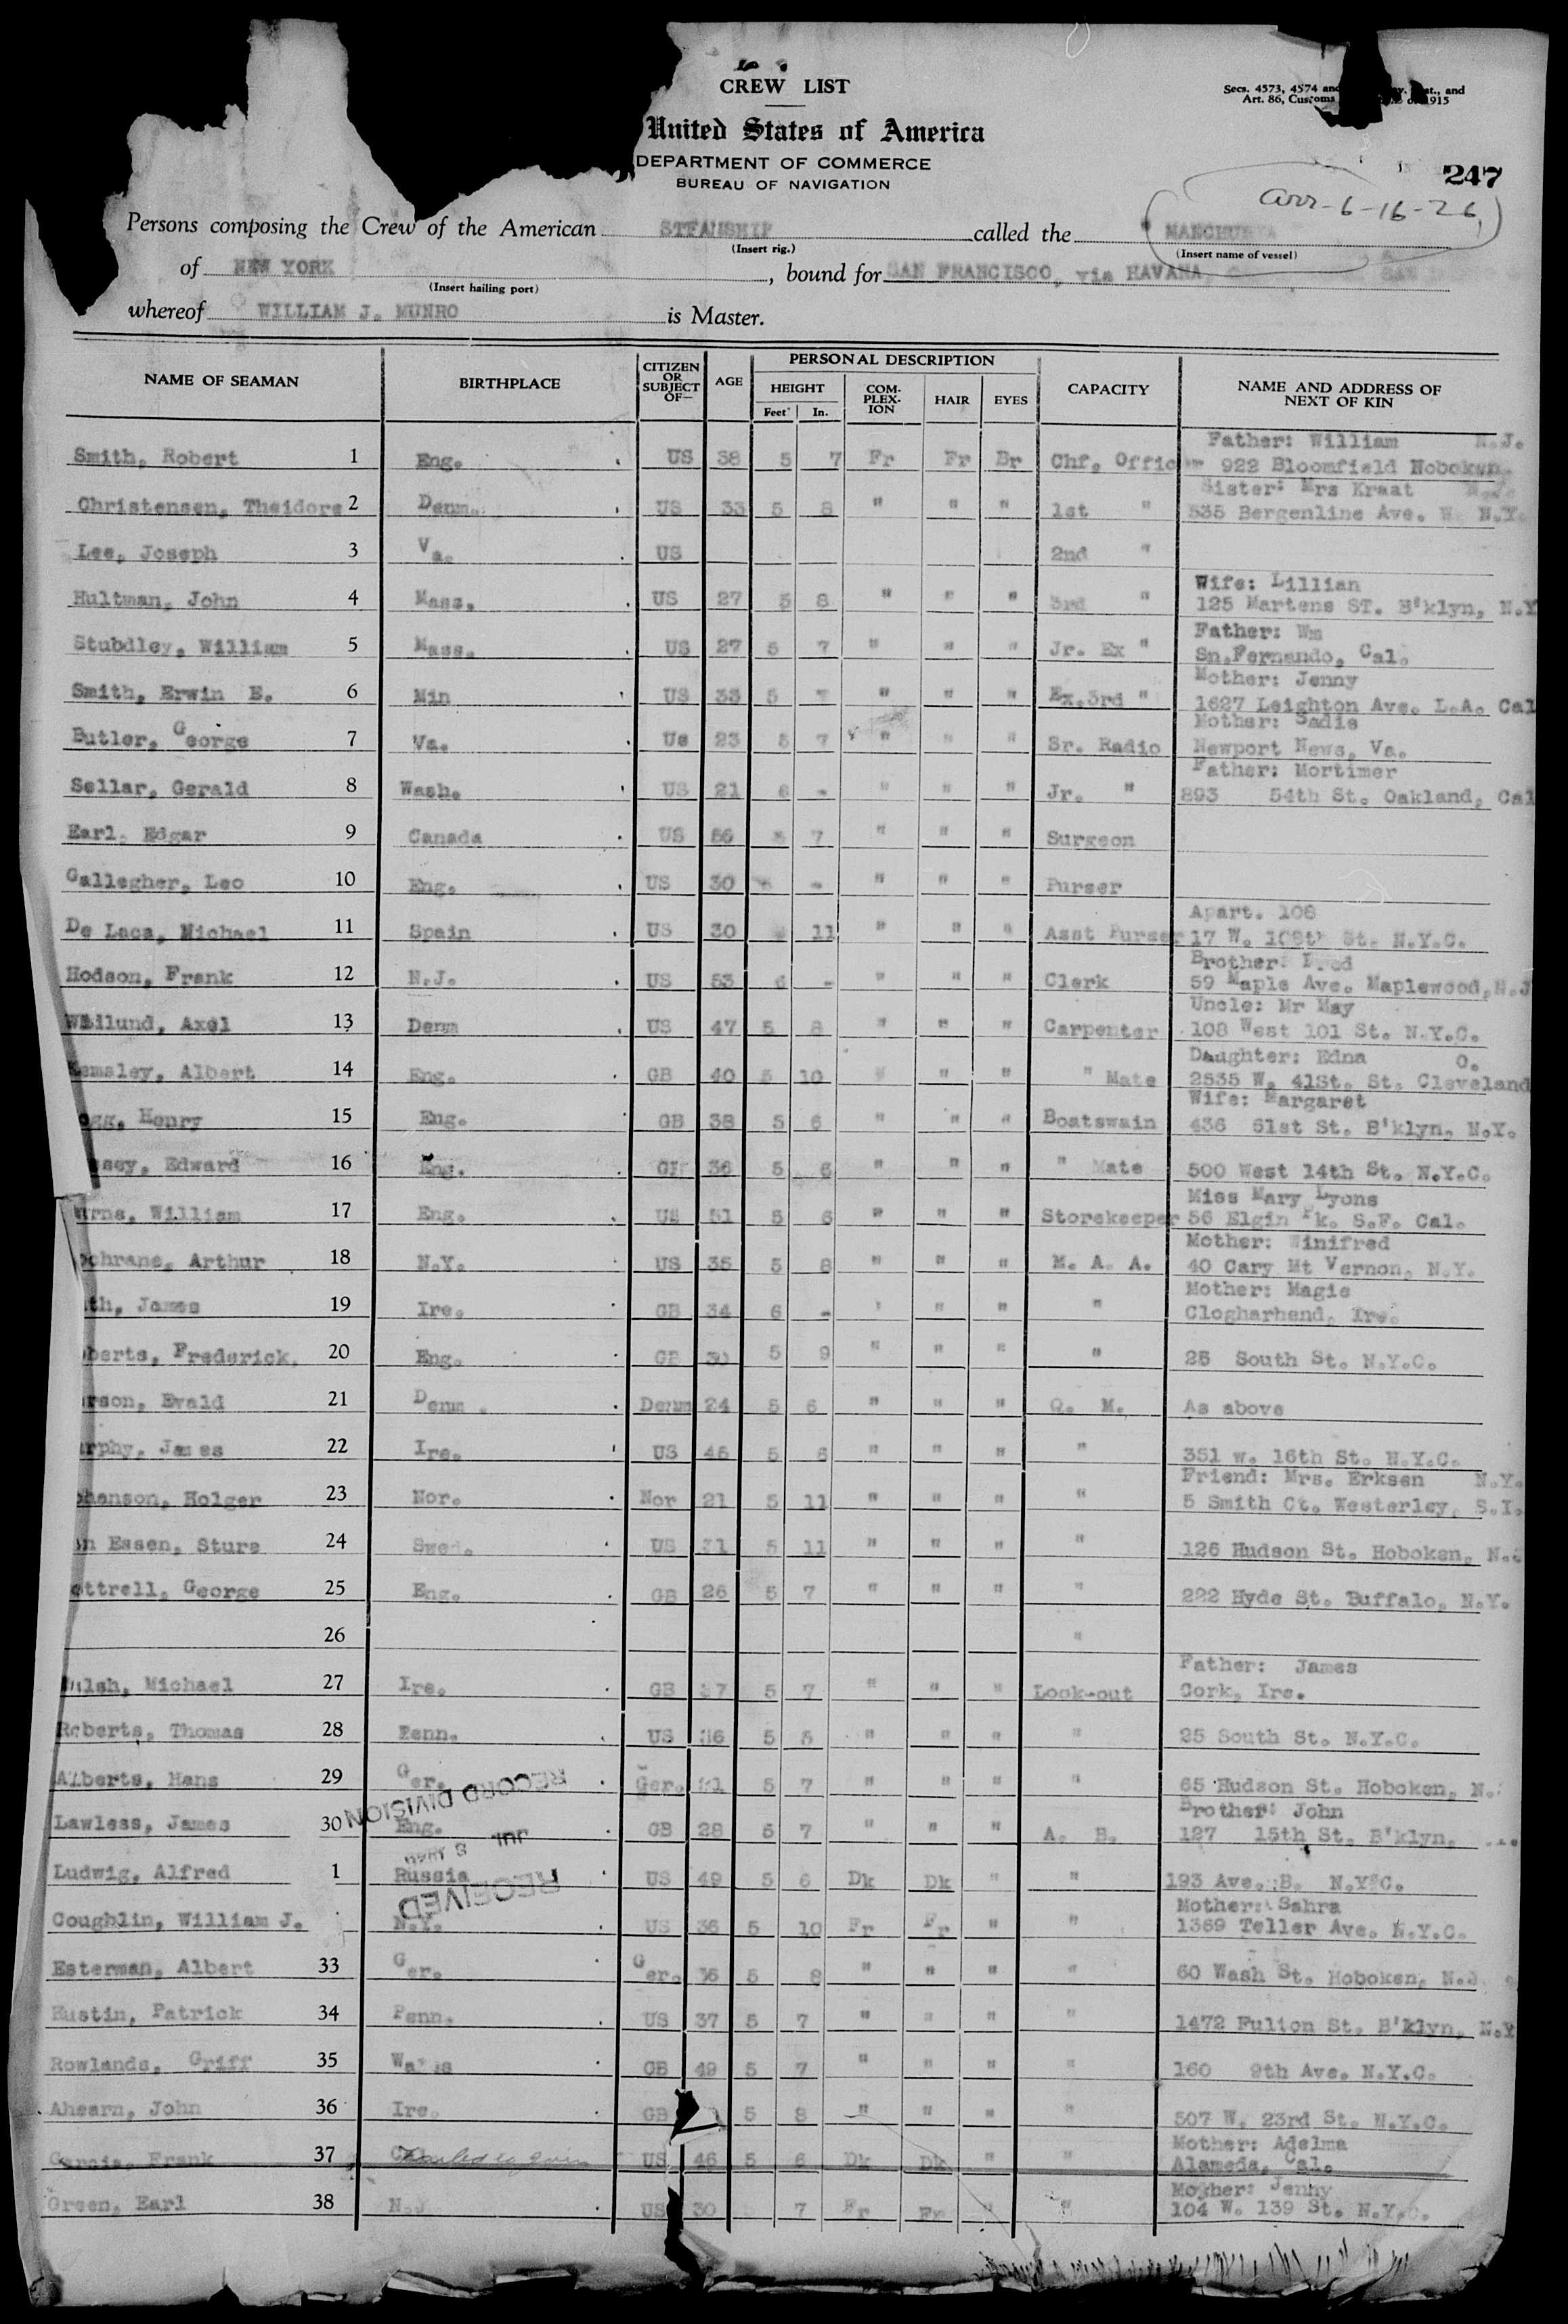 CREW LIST
Secs. 4573, 4574 and
Art. 86, Customs 1915
United States of America
DEPARTMENT OF COMMERCE
BUREAU OF NAVIGATION
247
arr-6-16-26
Persons composing the Crew of the American STEAMSHIP called the MANCHURIA
(Insert rig.) (Insert name of vessel)
of NEW YORK, bound for SAN FRANCISCO, via HAVANA, SAN
(Insert hailing port)
whereof WILLIAM J. MUNRO is Master.
NAME OF SEAMAN BIRTHPLACE CITIZEN OR SUBJECT OF— AGE PERSONAL DESCRIPTION CAPACITY NAME AND ADDRESS OF NEXT OF KIN
HEIGHT COM-PLEX-ION HAIR EYES
Feet In.
Father: William N.J.
Smith, Robert 1 Eng. US 38 5 7 Fr Fr Br Chf. Officer 922 Bloomfield Hoboken
Sister: Mrs Kraat
Christensen, Theidore 2 Denm. US 33 5 8 " " " 1st " 535 Bergenline Ave. W N.Y.
Lee, Joseph 3 Va. US 2nd "
Wife: Lillian
Hultman, John 4 Mass. US 27 5 8 " " " 3rd " 125 Martens ST. B'klyn, N.Y
Father: Wm
Stubdley, William 5 Mass. US 27 5 7 " " " Jr. Ex " Sn.Fernando, Cal.
Mother: Jenny
Smith, Erwin E. 6 Min US 33 5 " " " Ex.3rd " 1627 Leighton Ave. L.A. Cal
Mother: Sadie
Butler, George 7 Va. US 23 5 7 " " " Sr. Radio Newport News, Va.
Father: Mortimer
Sellar, Gerald 8 Wash. US 21 6 - " " " Jr. " 893 54th St. Oakland, Cal
Earl, Edgar 9 Canada US 56 5 7 " " " Surgeon
Gallegher, Leo 10 Eng. US 30 - " " " Purser
Apart. 108
De Laca, Michael 11 Spain US 30 11 " " " Asst Purser 17 W. 108th St. N.Y.C.
Brother:
Hodson, Frank 12 N.J. US 53 6 - " " " Clerk 59 Maple Ave. Maplewood, N.J
Uncle: Mr May
Axel 13 Denm US 47 5 8 " " " Carpenter 108 West 101 St. N.Y.C.
Daughter: Edna O.
emsley, Albert 14 Eng. GB 40 5 10 " " " " Mate 2535 W. 41St. St. Cleveland
Wife: Margaret
ogg, Henry 15 Eng. GB 38 5 6 " " " Boatswain 436 61st St. B'klyn, N.Y.
sey, Edward 16 Eng. GB 36 5 6 " " " " Mate 500 West 14th St. N.Y.C.
Miss Mary Lyons
urns, William 17 Eng. US 51 5 6 " " " Storekeeper 56 Elgin Pk. S.F. Cal.
Mother: Winifred
ochrane, Arthur 18 N.Y. US 35 5 8 " " " M. A. A. 40 Cary Mt Vernon, N.Y.
Mother: Magie
th, James 19 Ire. GB 34 6 - " " " " Clogharhend, Ire.
oberts, Frederick. 20 Eng. GB 30 5 9 " " " " 25 South St. N.Y.C.
rson, Evald 21 Denm. Denm 24 5 6 " " " Q. M. As above
urphy, James 22 Ire. US 45 5 6 " " " " 351 w. 16th St. N.Y.C.
Friend: Mrs. Erksen N.Y.
ohanson, Holger 23 Nor. Nor 21 5 11 " " " " 5 Smith Ct. Westerley, S.I.
n Essen, Sture 24 Swed. US 31 5 11 " " " " 126 Hudson St. Hoboken, N.J
ottrell, George 25 Eng. GB 26 5 7 " " " " 222 Hyde St. Buffalo, N.Y.
26 "
Father: James
alsh, Michael 27 Ire. GB 37 5 7 " " " Look-out Cork, Ire.
Roberts, Thomas 28 Penn. US 36 5 5 " " " " 25 South St. N.Y.C.
Alberts, Hans 29 Ger. Ger. 31 5 7 " " " " 65 Hudson St. Hoboken, N.
Brother: John
Lawless, James 30 Eng. GB 28 5 7 " " " A. B. 127 15th St. B'klyn,
RECORD DIVISION
JUL 8
RECEIVED
Ludwig, Alfred 1 Russia US 49 5 6 Dk Dk " " 193 Ave. B. N.Y.C.
Mother: Sahra
Coughlin, William J. N.Y. US 36 5 10 Fr Fr " " 1369 Teller Ave. N.Y.C.
Esterman, Albert 33 Ger. Ger. 36 5 8 " " " " 60 Wash St. Hoboken, N.J
Hustin, Patrick 34 Penn. US 37 5 7 " " " " 1472 Fulton St. B'klyn, N.Y
Rowlands, Griff 35 Wales GB 49 5 7 " " " " 160 9th Ave. N.Y.C.
Ahearn, John 36 Ire. GB 5 8 " " " " 507 W. 23rd St. N.Y.C.
Mother: Adelma
Garcia, Frank 37 Failed to join US 46 5 6 Dk Dk " " Alameda, Cal.
Mother: Jenny
Green, Earl 38 N.J US 30 7 Fr Fr " " 104 W. 139 St. N.Y.C.